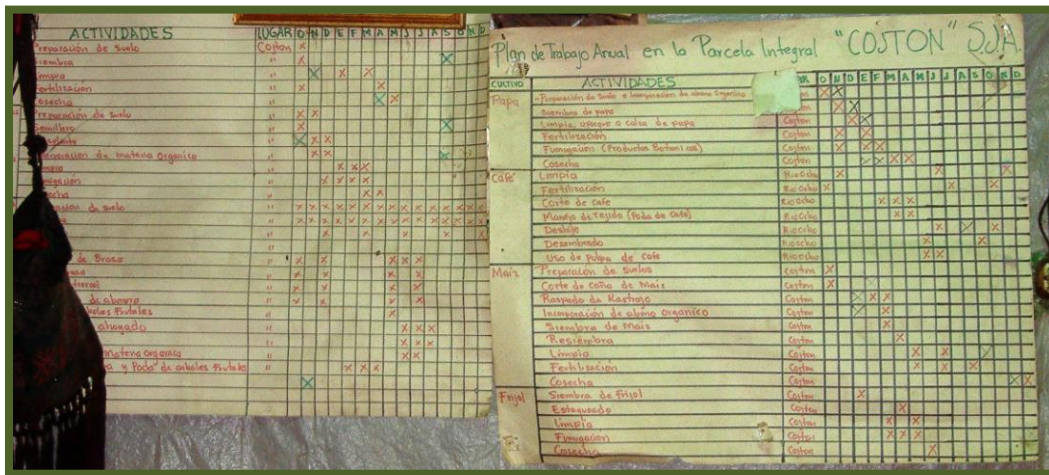 ACTIVIDADES LUGAR O N D E F M A M J J A S O N D
Preparación de suelo Cojton X
Siembra " X X
Limpia " X X X
Fertilización " X X
Cosecha " X X
Preparación de suelo " X X
Semillero " X X
" X X X
de materia organico " X X X
" X X X
" X X X X
" X X
de suelo " X X X X X X X X X X X X X X X
" X X X X X X X X X X X X X X X
" X X X X X X
"
de Broza " X X X X X
" X X X X
" X X X X
de abonera " X X X X
arboles Frutales " X
ahogado " X X X
" X X X
materia organica " X X
y Poda de arboles Frutale " X X X
X
Plan de Trabajo Anual en la Parcela Integral "COJTON" S.J.A.
CULTIVO ACTIVIDADES O N D E F M A M J J A S O N D
Papa Preparación de Suelo e Incorporación de abono Organico X X
Siembra de papa Cojton X X
Limpia, aporque o calza de papa Cojton X X
Fertilización Cojton X X
Fumigación (Productos Botanicos) Cojton X X X
Cosecha Cojton X X X X
Café Limpia Rio Ocho X X X
Fertilización Rio Ocho X X X
Corte de cafe Rio Ocho X X X
Manejo de Tejido (Poda de Café) Rio Ocho X X
Deshije Rio Ocho X X X
Desombrado Rio Ocho X X
Uso de Pulpa de cafe Rio Ocho X X
Maiz Preparación de Suelos Cojton X
Corte de Caña de Maiz Cojton X X
Raspado de Rastrojo Cojton X X X
Incorporación de abono organico Cojton X X
Siembra de Maiz Cojton X
Resiembra Cojton X
Limpia Cojton X X X
Fertilización Cojton X X X
Cosecha Cojton X X
Frijol Siembra de Frijol Cojton X
Estaqueado Cojton X
Limpia Cojton X X
Fumigación Cojton X X X
Cosecha Cojton X